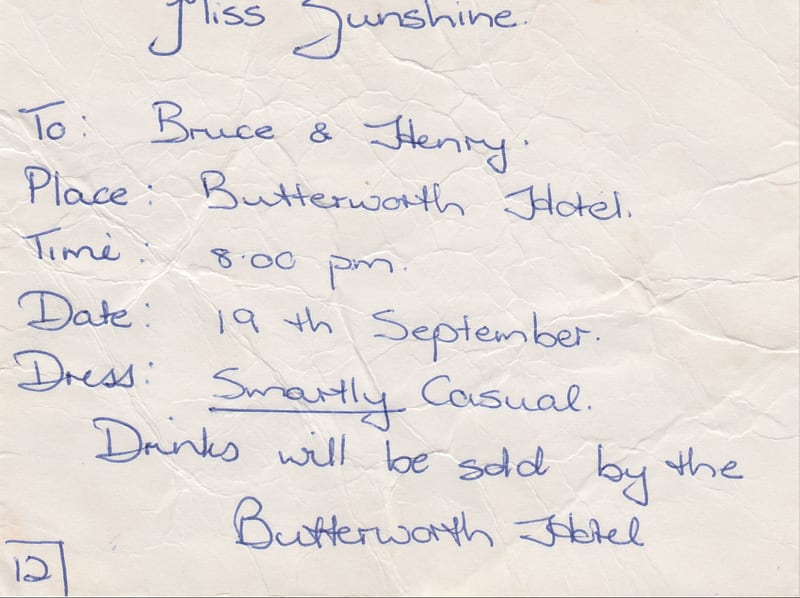 Miss Sunshine.
To: Bruce & Henry.
Place: Butterworth Hotel.
Time: 8.00 pm.
Date: 19 th September.
Dress: Smartly Casual.
Drinks will be sold by the
Butterworth Hotel
12